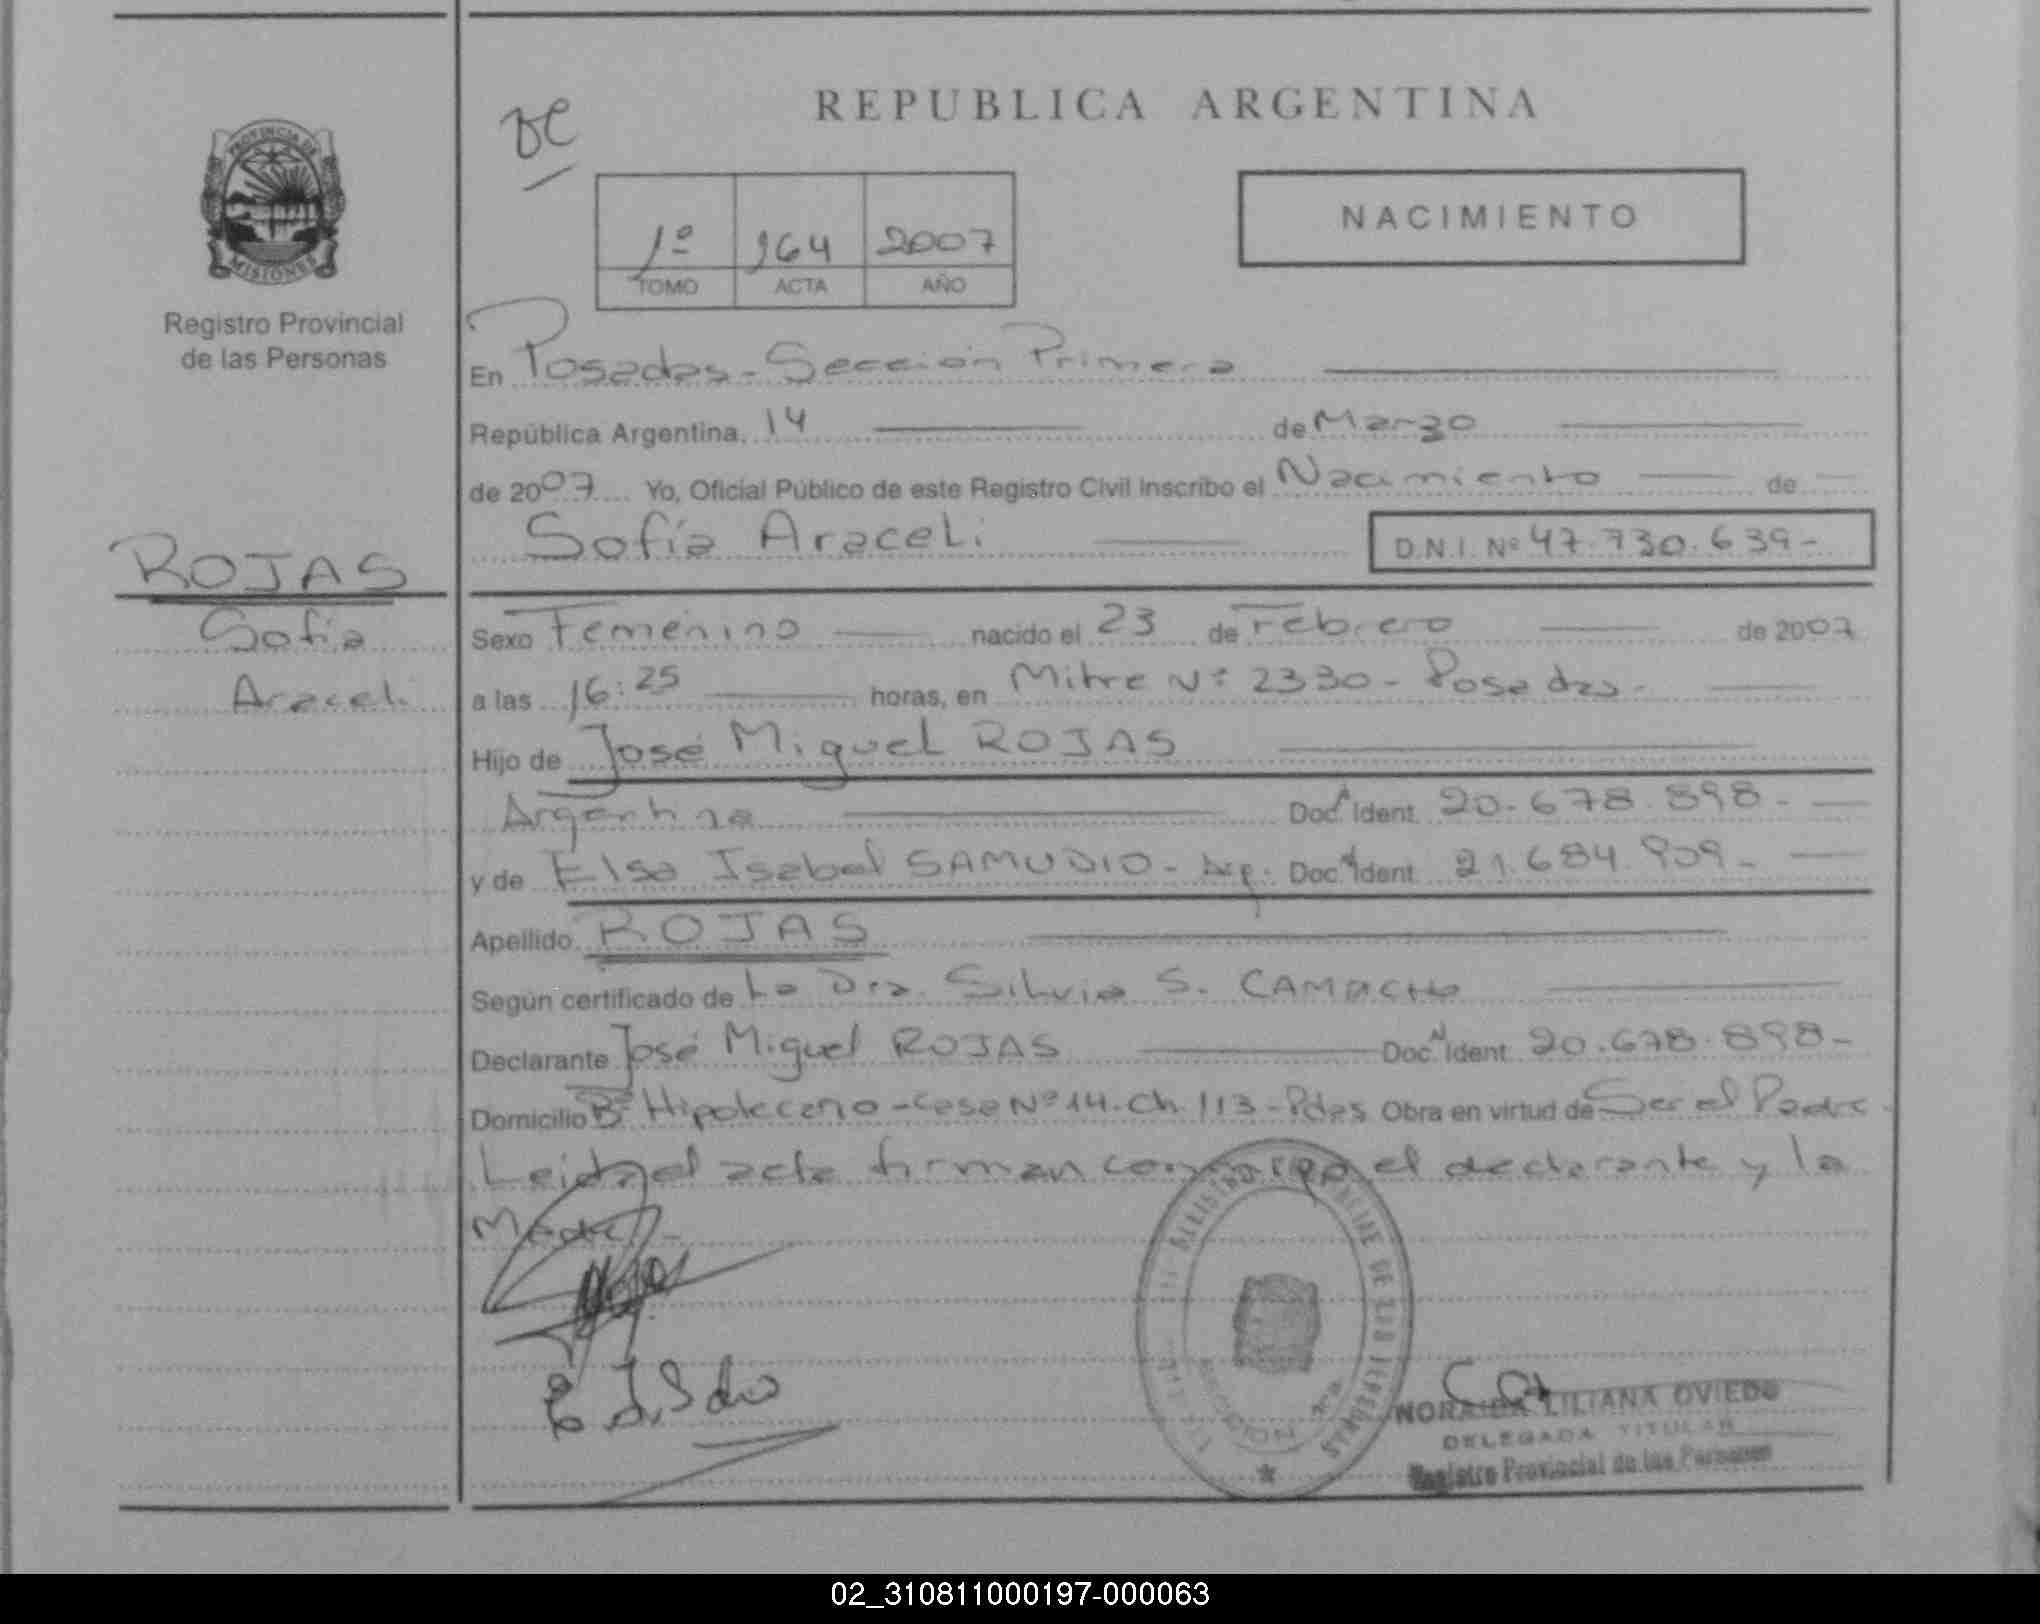 REPUBLICA ARGENTINA
PROVINCIA DE
MISIONES
Registro Provincial
de las Personas
1º 164 2007
TOMO ACTA AÑO
NACIMIENTO
En Posadas - Sección Primera
República Argentina, 14 de Marzo
de 2007 Yo, Oficial Público de este Registro Civil inscribo el Nacimiento de
Sofía Araceli D.N.I. Nº 47.730.639-
ROJAS
Sofía
Araceli
Sexo Femenino nacido el 23 de Febrero de 2007
a las 16:25 horas, en Mitre Nº 2330 - Posadas -
Hijo de José Miguel ROJAS
Argentina Doc. Ident 20.678.898-
y de Elsa Isabel SAMUDIO - Arg. Doc. Ident 21.684.909-
Apellido ROJAS
Según certificado de La Dra. Silvia S. CAMACHO
Declarante José Miguel ROJAS Doc. Ident 20.678.898-
Domicilio Bº Hipotecario - Casa Nº 14 - Ch. 113 - Pdas Obra en virtud de Ser el Padre -
Leída el acta firman conmigo el declarante y la
Madre -
NORAIDA LILIANA OVIEDO
DELEGADA TITULAR
Registro Provincial de las Personas
02_310811000197-000063